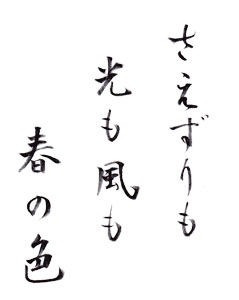 さえずりも
光も風も
春の色